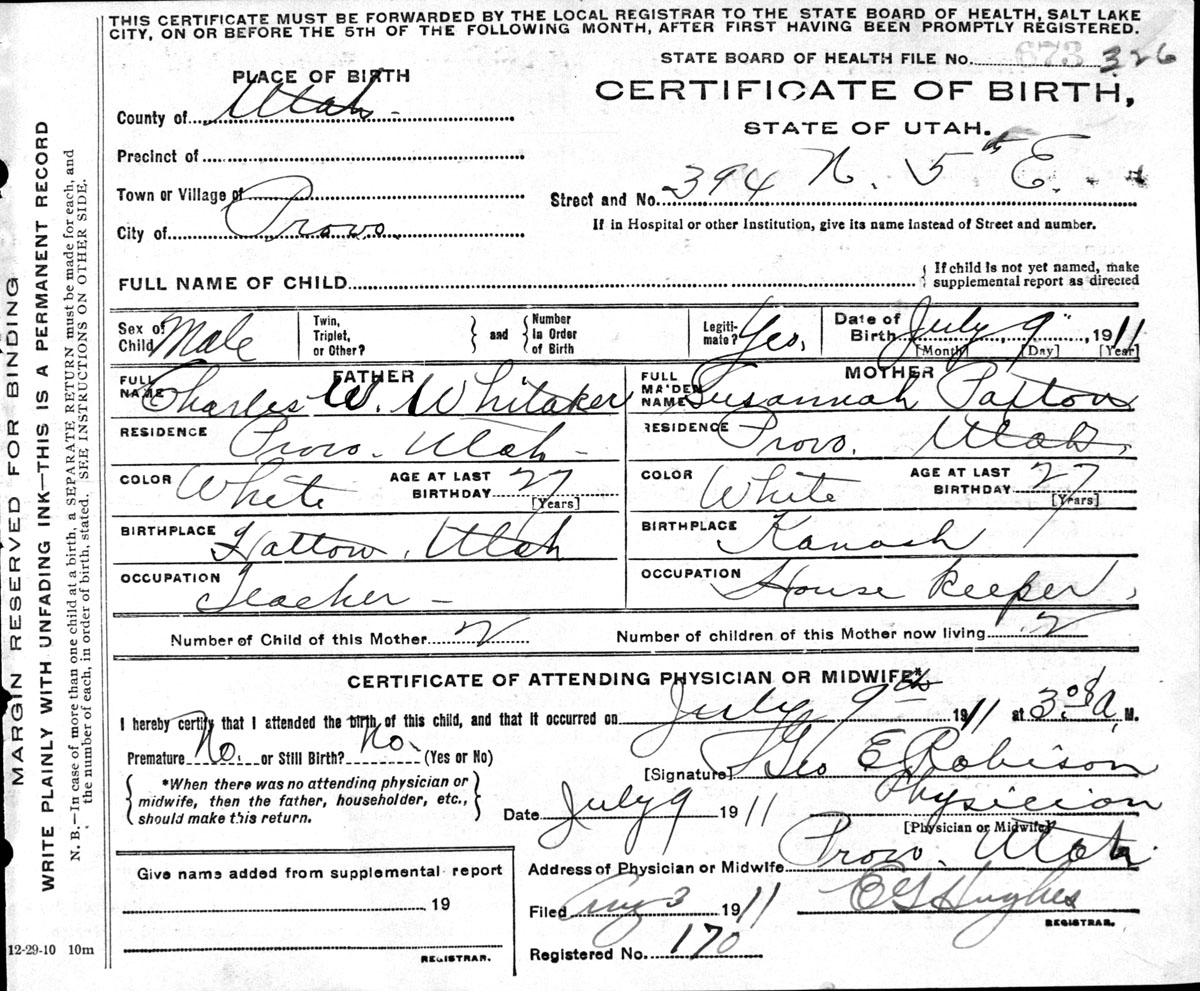 THIS CERTIFICATE MUST BE FORWARDED BY THE LOCAL REGISTRAR TO THE STATE BOARD OF HEALTH, SALT LAKE
CITY, ON OR BEFORE THE 5TH OF THE FOLLOWING MONTH, AFTER FIRST HAVING BEEN PROMPTLY REGISTERED.
STATE BOARD OF HEALTH FILE No. 673 326
PLACE OF BIRTH
CERTIFICATE OF BIRTH,
County of Utah
STATE OF UTAH.
Precinct of
Town or Village of
Street and No. 394 N. 5th E.
City of Provo
If in Hospital or other Institution, give its name instead of Street and number.
FULL NAME OF CHILD
{ If child is not yet named, make
supplemental report as directed
Sex of Child Male
Twin, Triplet, or Other? } and { Number in Order of Birth
Legiti-mate? Yes,
Date of Birth July 9" 1911
[Month] [Day] [Year]
FATHER
MOTHER
FULL NAME Charles W. Whitaker
FULL MAIDEN NAME Susannah Paxton
RESIDENCE Provo. Utah -
RESIDENCE Provo. Utah,
COLOR White AGE AT LAST BIRTHDAY 27 [Years]
COLOR White AGE AT LAST BIRTHDAY 27 [Years]
BIRTHPLACE Hatton, Utah
BIRTHPLACE Kanosh
OCCUPATION Teacher -
OCCUPATION House Keeper,
Number of Child of this Mother 2
Number of children of this Mother now living 2
CERTIFICATE OF ATTENDING PHYSICIAN OR MIDWIFE*
I hereby certify that I attended the birth of this child, and that it occurred on July 9th 1911 at 3:08 a, M.
Premature No. or Still Birth? No. (Yes or No)
[Signature] Geo E Robison
{ *When there was no attending physician or
midwife, then the father, householder, etc.,
should make this return. }
Date July 9 1911
Physician
[Physician or Midwife]
Address of Physician or Midwife Provo. Utah
Give name added from supplemental report
19
REGISTRAR.
Filed Aug 3 1911 E G Hughes
REGISTRAR.
Registered No. 170
12-29-10 10m
MARGIN RESERVED FOR BINDING
WRITE PLAINLY WITH UNFADING INK—THIS IS A PERMANENT RECORD
N. B.—In case of more than one child at a birth, a SEPARATE RETURN must be made for each, and
the number of each, in order of birth, stated. SEE INSTRUCTIONS ON OTHER SIDE.